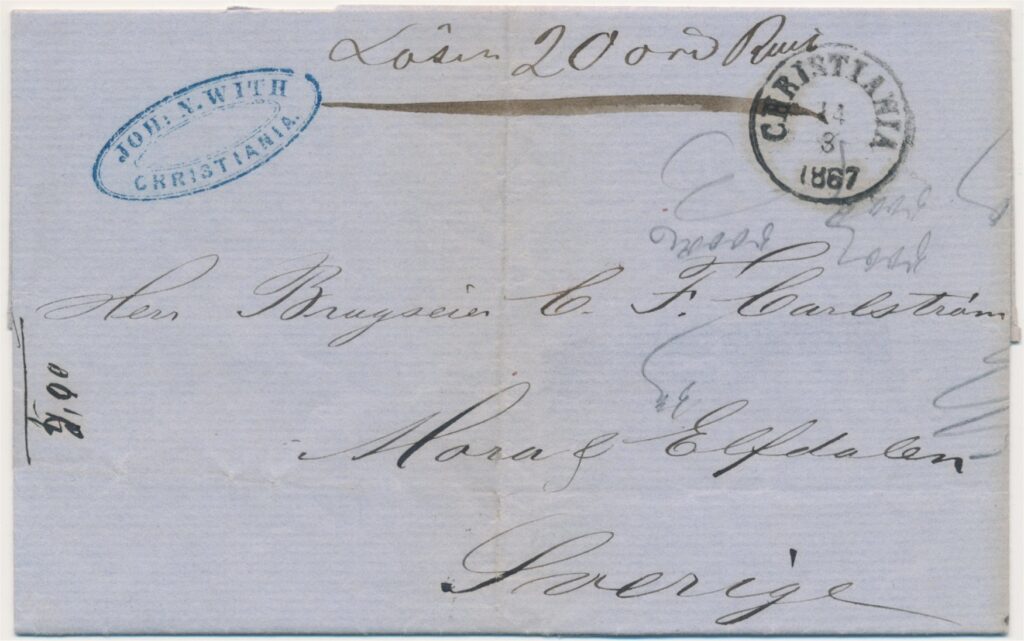 Lösen 20 ore Rmt
JOH: N. WITH
CHRISTIANIA.
CHRISTIANIA
14
3
1867
Herr Brugseier C. F. Carlström
Mora & Elfdalen
Sverige